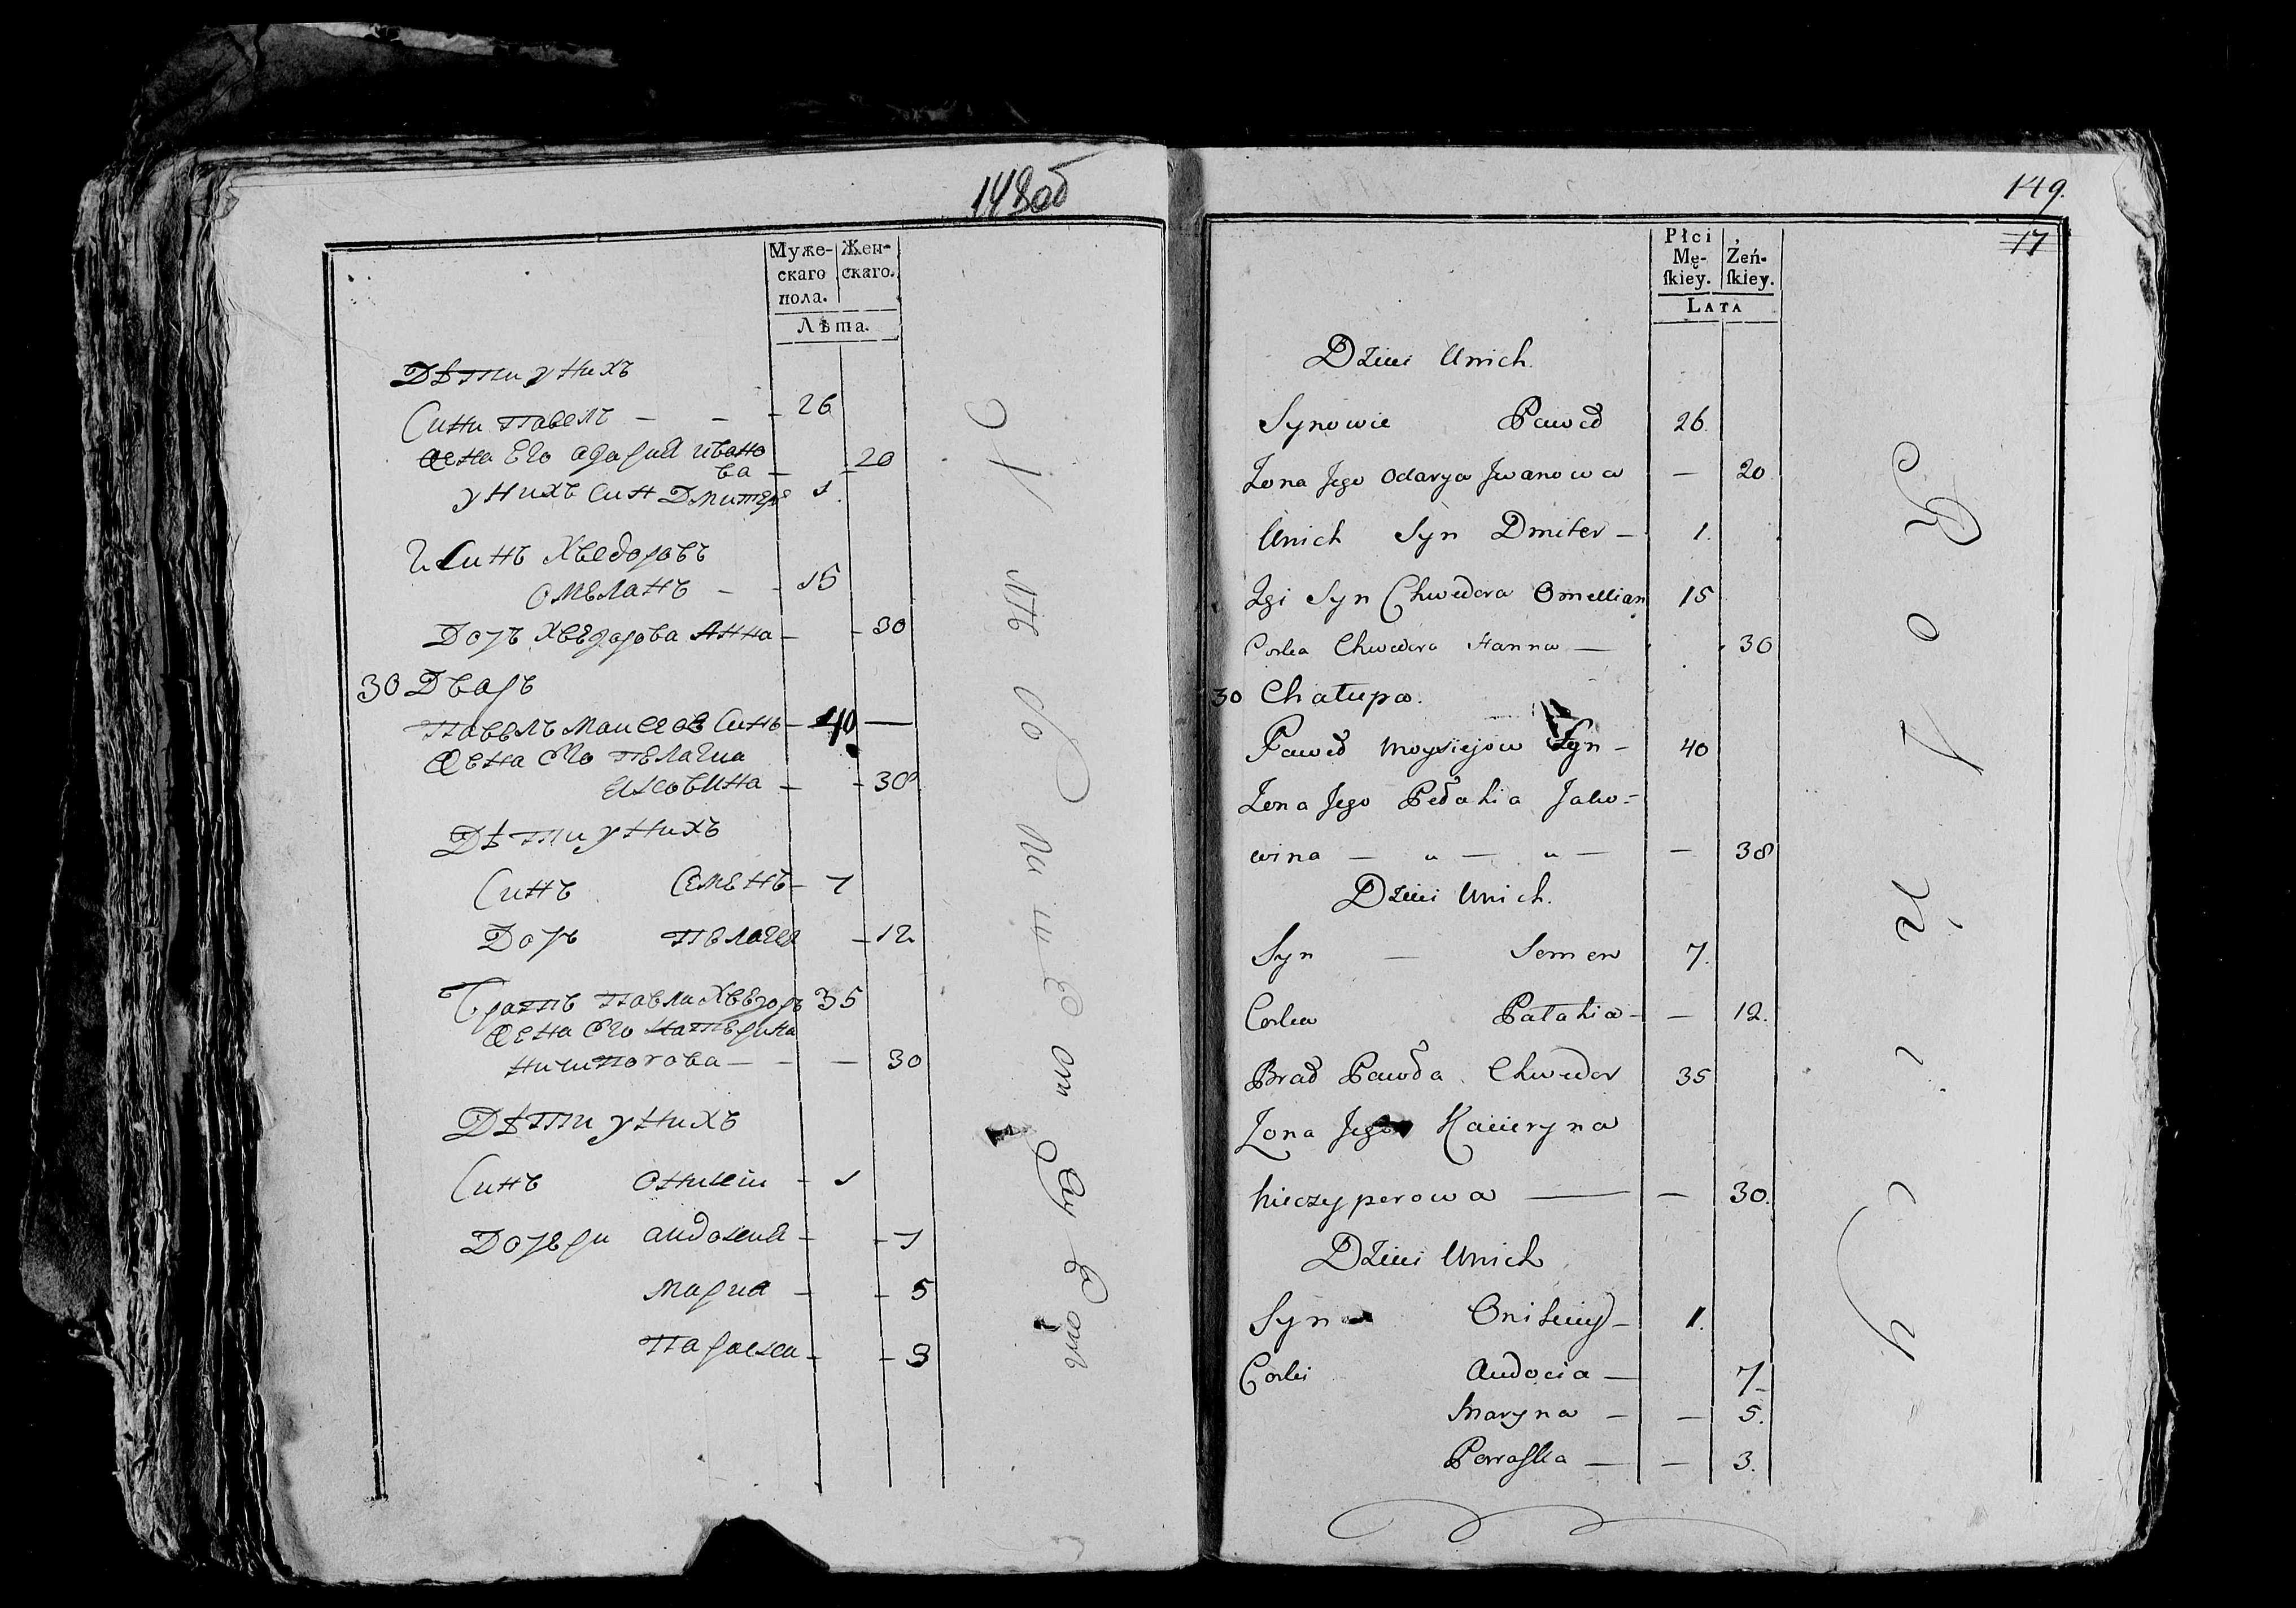 148об
Муже-
скаго
пола.
Жен-
скаго.
Лѣта.
Дѣти у нихъ
Сини Павелъ — — — 26
Жена Его Одария Ивано
ва — 20
у нихъ Син Дмитеръ 1
И Синъ Хведоровъ
Омеланъ — — 15
Дочъ Хведорова Анна — — 30
30 Дворъ
Павелъ Моисеов Синъ — 40 —
Жена Его Пелагиа
Яковина — — 38
Дѣти у нихъ
Синъ Семенъ — 7
Дочъ Пелагея — 12
Братъ Павла Хведоръ 35
Жена Его Катерина
Ничипорова — — — 30
Дѣти у нихъ
Синъ Онисеій — 1
Дочери Андокия — — 7
Мариа — — 5
Параска — — 3
149.
17
Płci
Mę-
ſkiey.
Żeń-
ſkiey.
LATA
Dzieci Unich.
Synowie Paweł 26.
Zona Jego Odarya Jwanowa — 20
Unich Syn Dmiter — 1.
Zgi Syn Chwedora Omellian 15
Corka Chwedora Hanna — 30
30 Chałupa.
Paweł Moysiejow Syn — 40
Zona Jego Pełahia Jako=
wina — " — " — — 38
Dzieci Unich.
Syn — Semen 7.
Corka Pałahia — — 12.
Brad Pawła Chwedor 35
Zona Jego Kacieryna
Nieczyperowa — — 30.
Dzieci Unich
Syn Onisieiy — 1.
Corki Audocia — 7—
Maryna — — 5.
Parraſka — — 3.